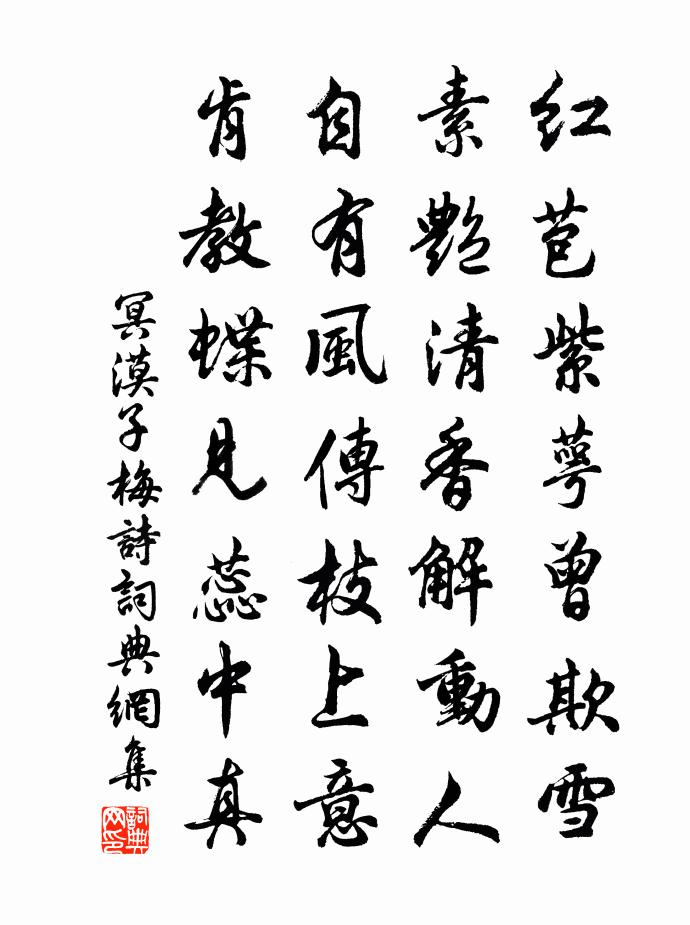 红苞紫萼曾欺雪
素艷清香解動人
自有風傳枝上意
肯教蝶見蕊中真
冥漠子梅詩詞典網集
詞典網印